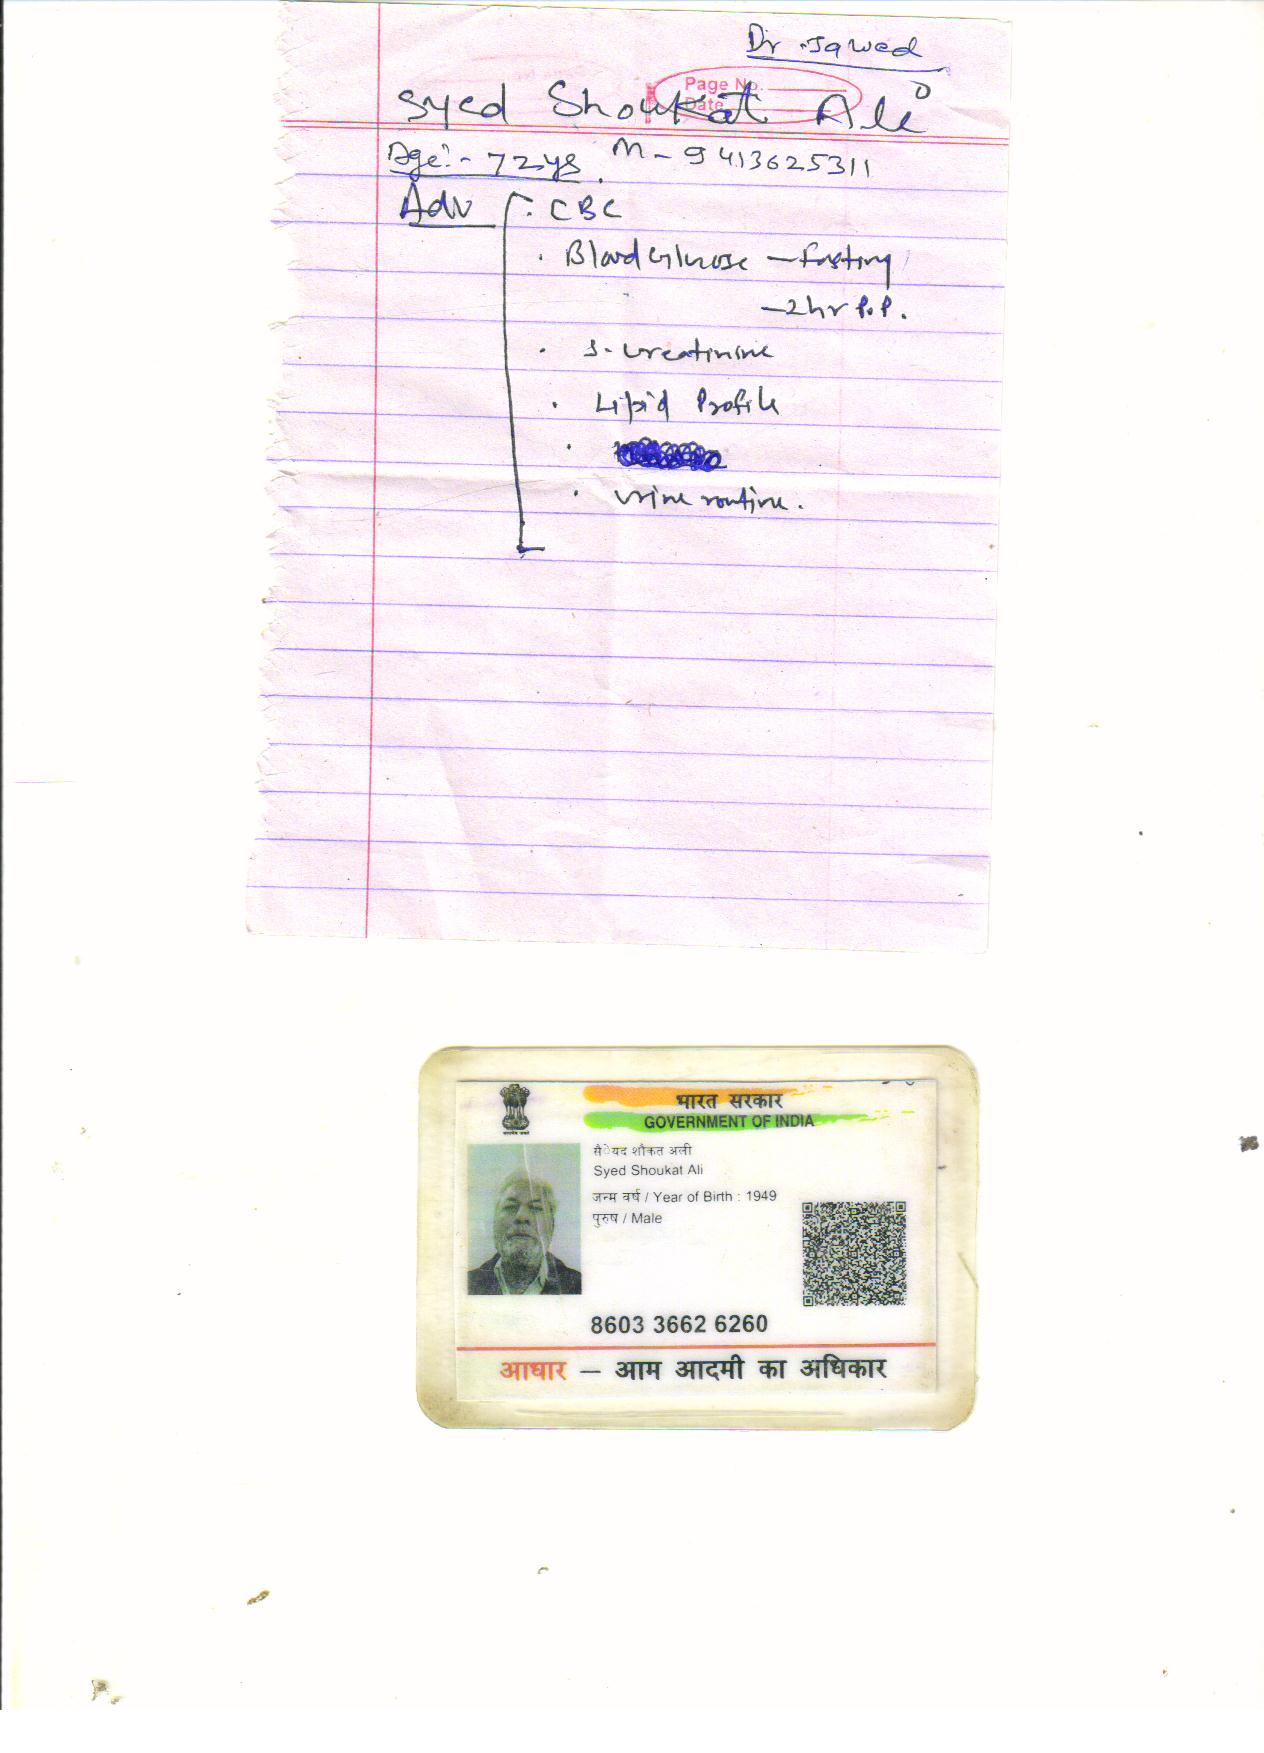 Dr. Jawed
Page No.
Date
Syed Shoukat Ali
Age:- 72 ys. M- 9413625311
Adv
. CBC
. Blood Glucose - Fasting
- 2hr P.P.
. S. Creatinine
. Lipid Profile
. Urine routine.
भारत सरकार
GOVERNMENT OF INDIA
सैेयद शौकत अली
Syed Shoukat Ali
जन्म वर्ष / Year of Birth : 1949
पुरुष / Male
8603 3662 6260
आधार – आम आदमी का अधिकार